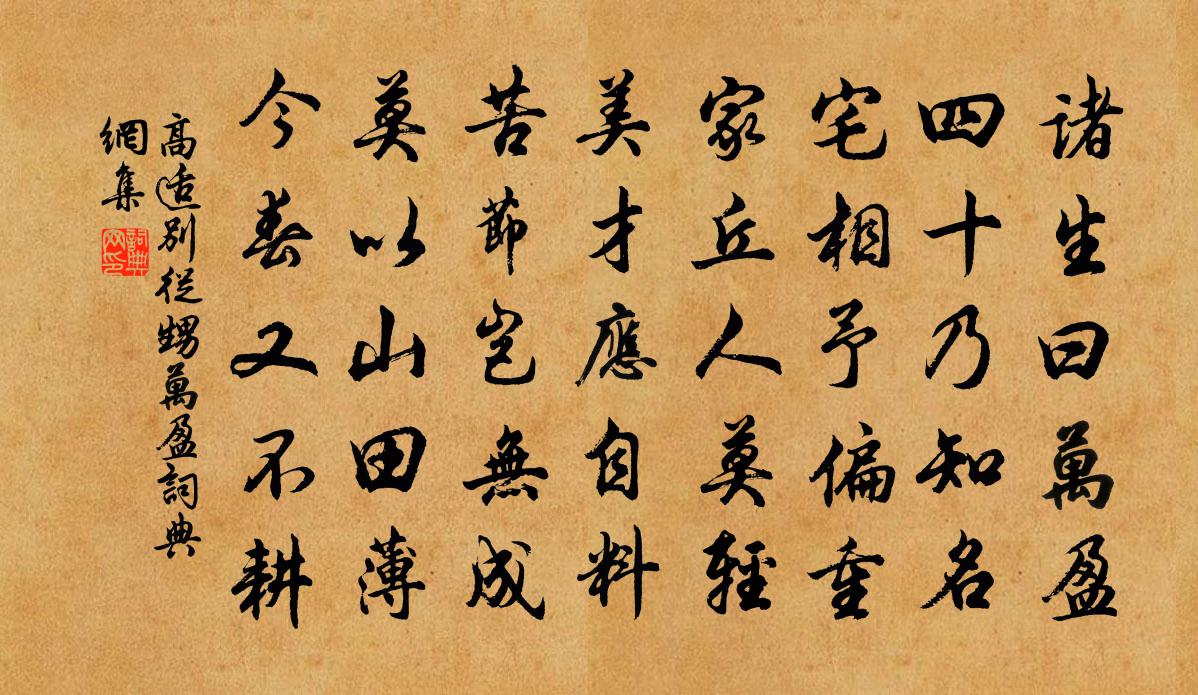 諸生曰萬盈
四十乃知名
宅相予偏重
家丘人莫輕
美才應自料
苦節豈無成
莫以山田薄
今春又不耕
高适別從甥萬盈詞典
網集
詞典
网印